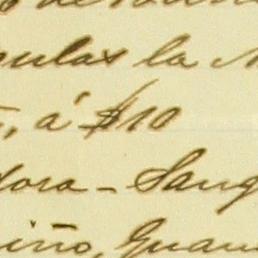 culas la
, á $10
dora - Sang
iño, Guan